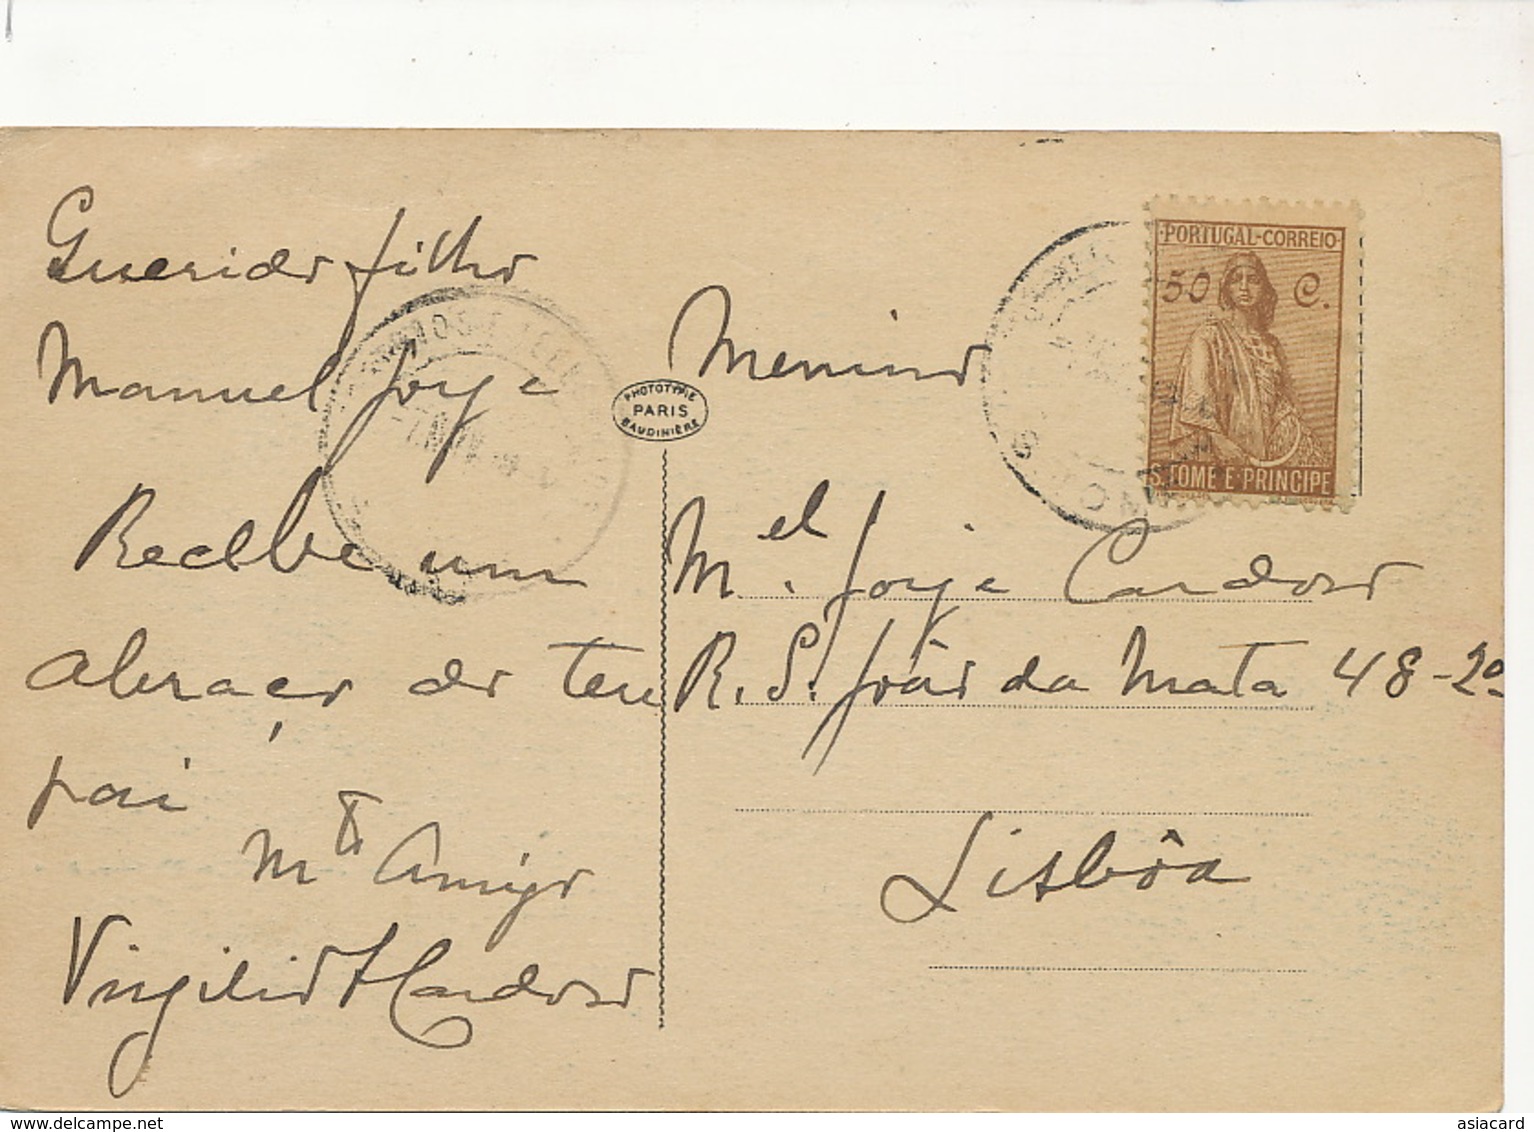 Querido filho
Manuel Jorge
Recebe um
abraço do teu
pai
Mto Amigo
Virgilio A Cardoso
PHOTOTYPIE
PARIS
BAUDINIÈRE
7 NOV
PORTUGAL-CORREIO
50 C.
S. TOMÉ E PRINCIPE
Menino
Mel. Jorge Cardoso
R. S. João da Mata 48-2º
Lisbôa
asiacard